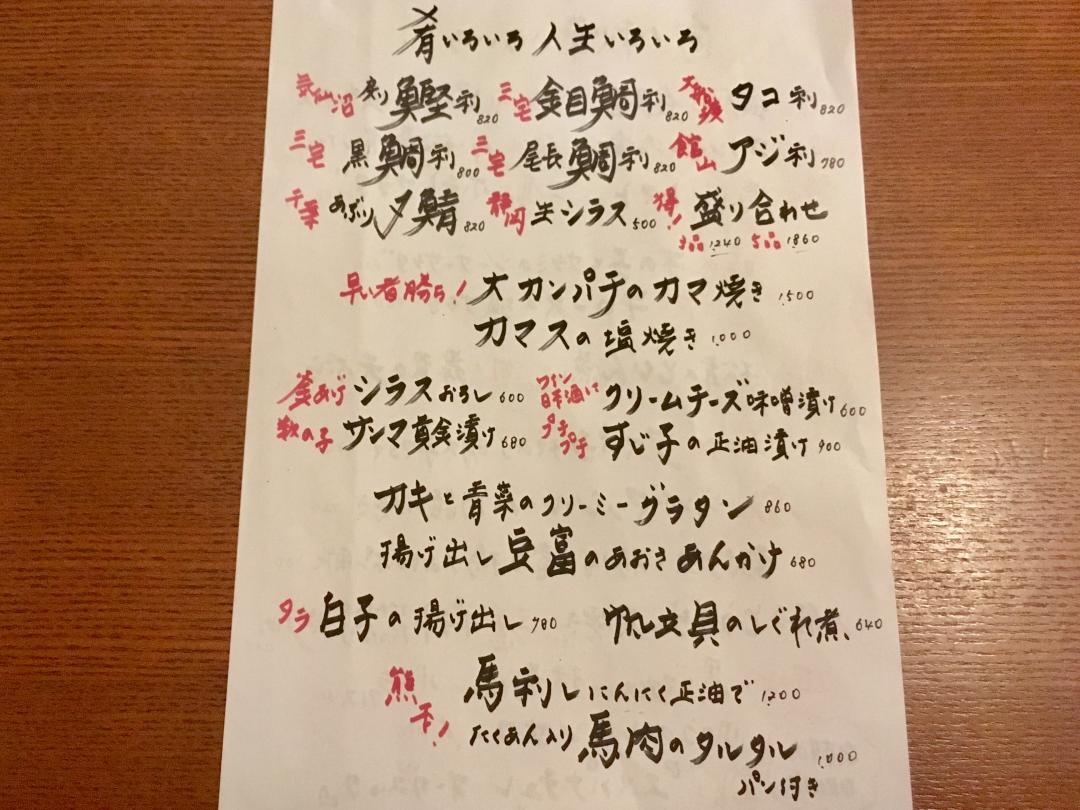 肴いろいろ 人生いろいろ
気仙沼 戻り鰹刺820 三宅 金目鯛刺820 大船渡 タコ刺820
三宅 黒鯛刺800 三宅 尾長鯛刺820 館山 アジ刺780
千葉 あぶり〆鯖820 静岡 生シラス500 得! 盛り合わせ
3品1240 5品1860
早い者勝ち! 大カンパチのカマ焼き1500
カマスの塩焼き1000
釜あげ シラスおろし600 ワイン日本酒に クリームチーズ味噌漬け600
数の子 サンマ黄金漬け680 プチプチ すじ子の正油漬け900
カキと青菜のクリーミーグラタン860
揚げ出し豆富のあおさあんかけ680
タラ 白子の揚げ出し780 帆立貝のしぐれ煮640
熊本! 馬刺しにんにく正油で1200
たくあん入り馬肉のタルタル1000
パン付き